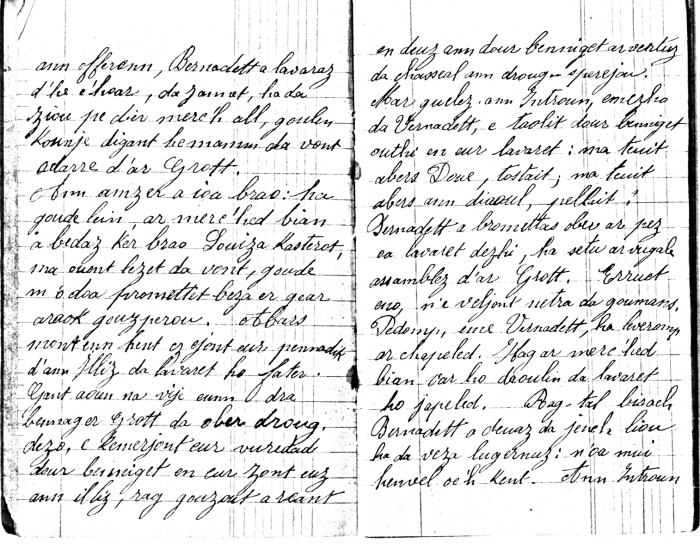 ann offerenn, Bernadett a lavaraz
d'he c'hoar, da Jannet, ha da
ziou pe dier merc'h all, goulen
kounje digant he mamm da vont
adarre d'ar Grott.
Ann amzer a ioa brao: ha
goude lein ar merc'hed bian
a bedaz ker brao Louiza Kasterot,
ma ouent lezet da vont, goude
m'o doa promettet beza er gear
araok gouzperou. Abars
mont enn hent ez ejont eur pennadik
d'ann Iliz da lavaret ho fater.
Gant aoun na vije eunn dra
bennag er Grott da ober droug
dezo, e kemerjont eur vuredad
dour benniget en eur zont euz
ann iliz, rag gouzout a reant
en deuz ann dour benniget ar vertuz
da chasseal ann droug-sperejou.
Mar guelez ann Introun, emezho
da Vernadett, e taolit dour benniget
outhi en eur lavaret: ma teuit
abers Doue, tostait; ma teuit
abers ann diaoul, pelluit!
Bernadett a bromettas ober ar pez
oa lavaret dezhi, ha setu ar vugale
assamblez d'ar Grott. Erruet
eno, n'e veljont netra da goumans.
Pedomp, eme Vernadett, ha leveromp
ar chapeled. Hag ar merc'hed
bian var ho daoulin da lavaret
ho japeled. Rag-tal bisach
Bernadett a deuaz da jench liou
ha da veza lugernuz: n'oa mui
henvel oc'h kent. Ann Introun